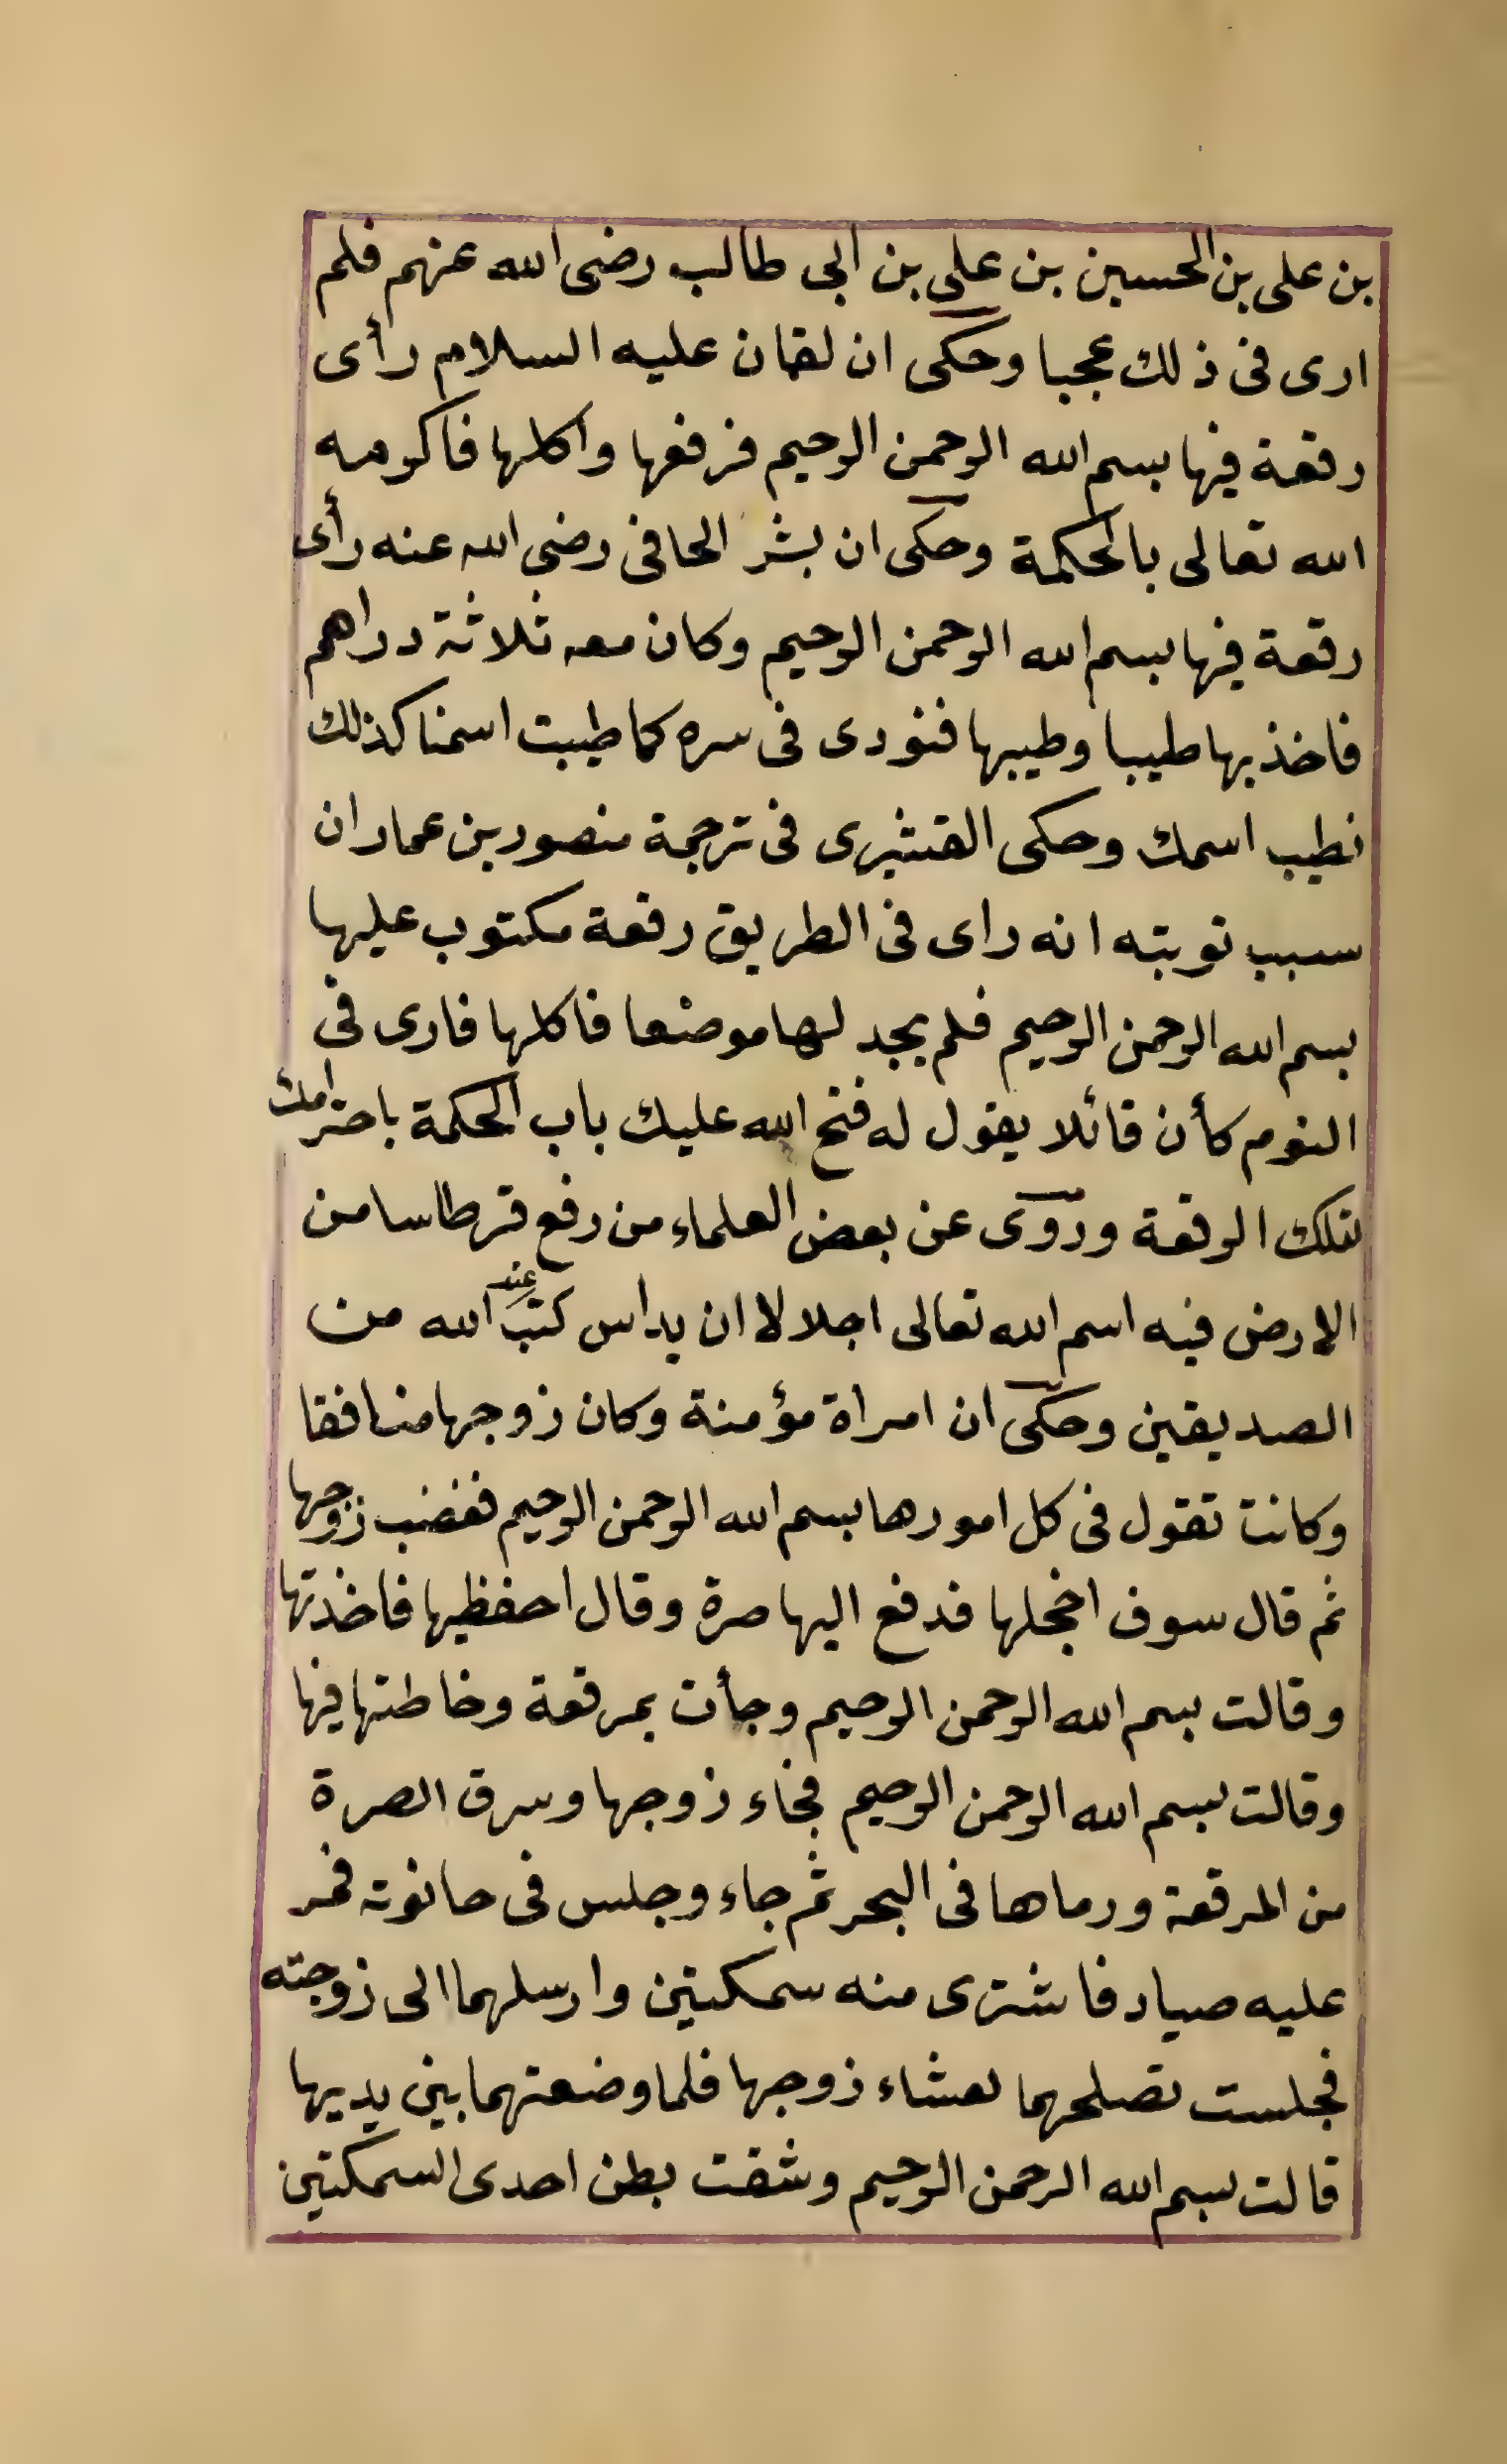 بن على بن الحسين بن على بن ابى طالب رضى الله عنهم فلم
ارى فى ذلك عجبا وحكى ان لقمان عليه السلام رأى
رقعة فيها بسم الله الرحمن الرحيم فرفعها واكلها فاكرمه
الله تعالى بالحكمة وحكى ان بشر الحافى رضى الله عنه رأى
رقعة فيها بسم الله الرحمن الرحيم وكان معه ثلاثة دراهم
فاخذ بها طيبا وطيبها فنودى فى سره كما طيبت اسمنا كذلك
نطيب اسمك وحكى القشيرى فى ترجمة منصور بن عمار ان
سبب توبته انه راى فى الطريق رقعة مكتوب عليها
بسم الله الرحمن الرحيم فلم يجد لها موضعا فاكلها فارى فى
النوم كأن قائلا يقول له فتح الله عليك باب الحكمة باحترامك
لتلك الرقعة وروى عن بعض العلماء من رفع قرطاسا من
الارض فيه اسم الله تعالى اجلالا ان يداس كتب عند الله من
الصديقين وحكى ان امراة مؤمنة وكان زوجها منافقا
وكانت تقول فى كل امورها بسم الله الرحمن الرحيم فغضب زوجها
ثم قال سوف اخجلها فدفع اليها صرة وقال احفظيها فاخذتها
وقالت بسم الله الرحمن الرحيم وجأت بمرقعة وخاطتها فيها
وقالت بسم الله الرحمن الرحيم فجاء زوجها وسرق الصرة
من المرقعة ورماها فى البحر ثم جاء وجلس فى حانوته فمر
عليه صياد فاشترى منه سمكتين وارسلهما الى زوجته
فجلست تصلحهما لعشاء زوجها فلما وضعتهما بين يديها
قالت بسم الله الرحمن الرحيم وشقت بطن احدى السمكتين